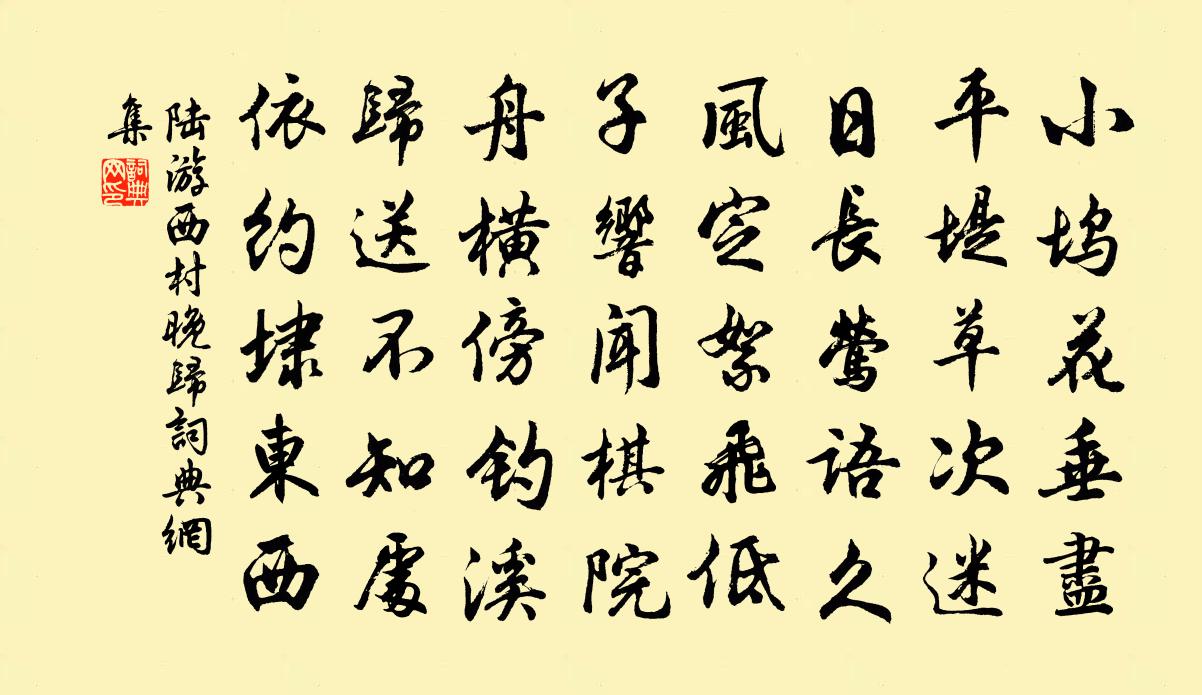 小坞花垂盡
平堤草次迷
日長鶯語久
風定絮飛低
子響聞棋院
舟橫傍釣溪
歸送不知處
依約埭東西
陆游西村晚歸詞典網
集
詞典网印